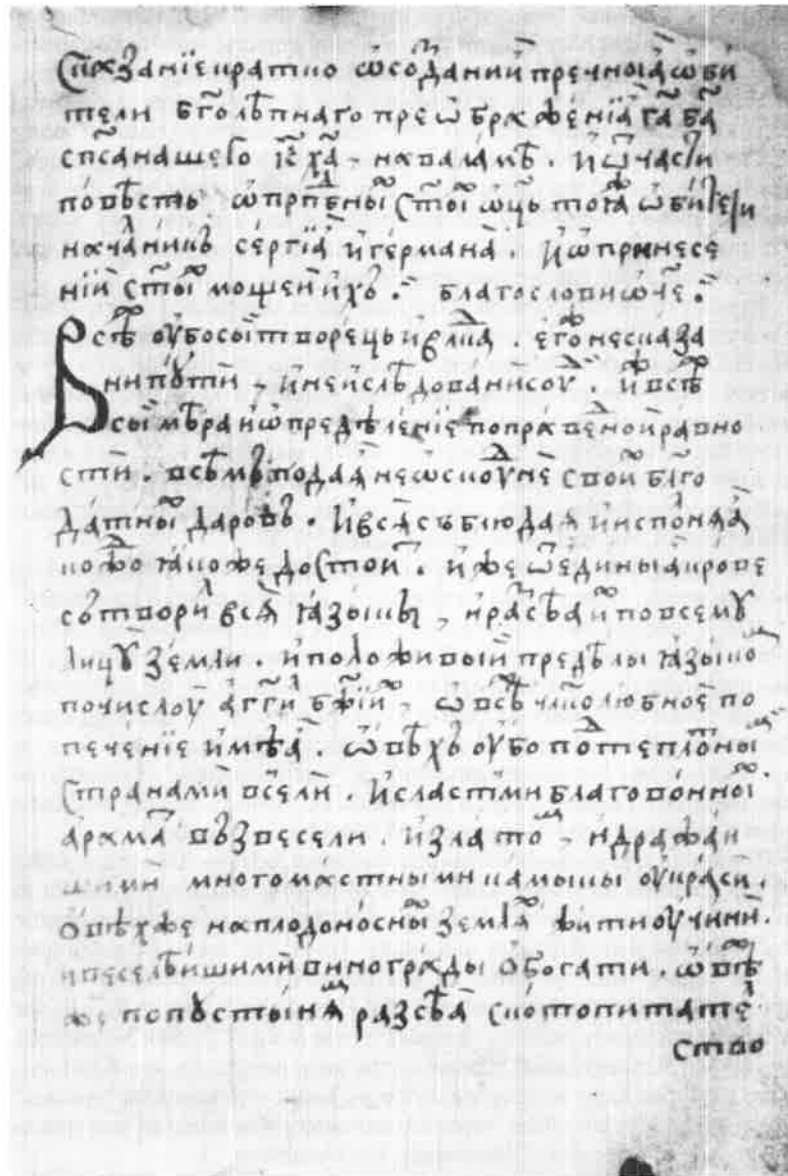 Сказанїе кратко ѡ созданїи пречⷭ҇тныѧ ѡби
тели бг҃олѣпнаго преѡбраженїѧ гⷭ҇а бг҃а
сп҃са нашего іс҃ хⷭ҇а, на валаамѣ. и ѿчасти
повѣсть ѡ прпⷣбныⷯ ст҃ыⷯ ѡц҃ъ тоѧⷤ ѡбители
начаⷧникъ сергїа и германа. и ѡ принесе
нїи ст҃ыⷯ мощей ихъ. благослови ѡч҃е.
Всѣⷯ убо сый творецъ и влⷣка. егоⷤ несказа
нни путїи, и неислѣдованни суⷣ. иⷤ всѣⷯ
сый мѣра и ѡпредѣленїе по праведной равно
сти. всѣмъ подаѧ неѡскуⷣне своиⷯ бл҃го
датныⷯ даровъ. и всѧ съблюдаѧ и исполнѧѧ
коⷤⷣо ꙗкоже достоиⷮ. иже ѿ единыѧ крове
сътвориⷧ всѧ ꙗзыкы, и расѣѧ и по всему
лицу земли. и положивый предѣлы ꙗзыкоⷨ
по числу агг҃лъ бж҃їиⷯ, ѡ всѣⷯ чл҃колюбное по
печенїе имѣѧ. ѡвѣхъ убо поⷣ теплотныⷨ
странами всели. и сластми благовонныⷯ
аромаⷮ възвесели. и златоⷨ, и дражай
шими многомастными камыкы украси.
овѣхже на плодоносныⷯ землѧⷯ жити учини.
и веселѣйшими винограды обогати. ѡвѣⷯ
же по пустынѧⷨ разсѣѧ скотопитатеⷧ
ство